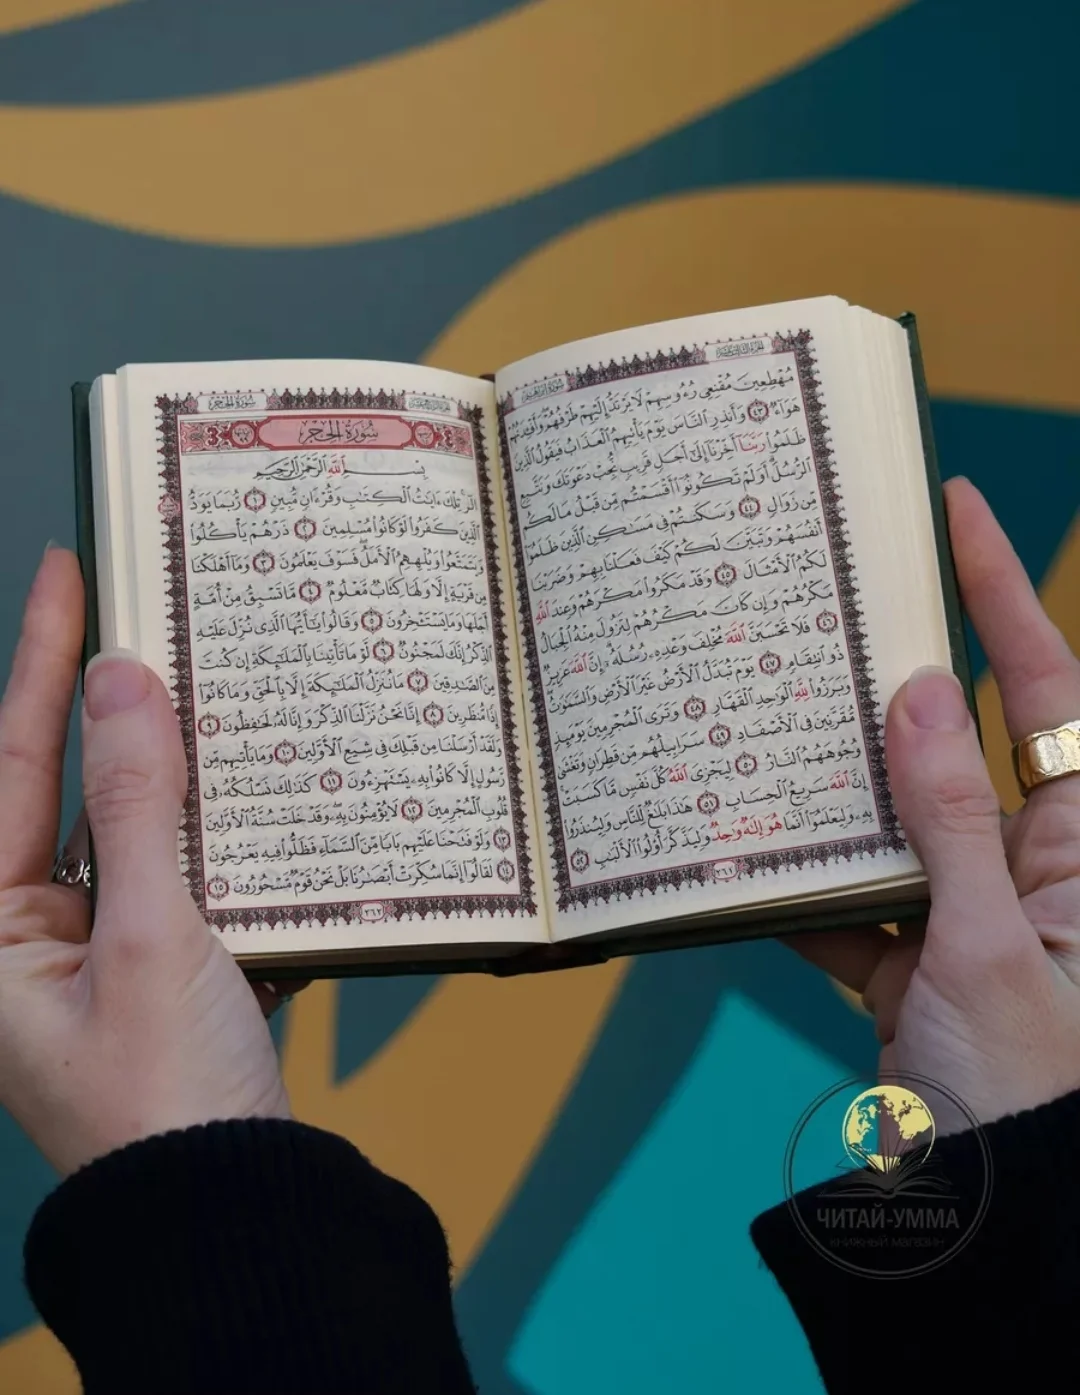 سُورَةُ إِبْرَاهِيمَ
مُهْطِعِينَ مُقْنِعِي رُءُوسِهِمْ لَا يَرْتَدُّ إِلَيْهِمْ طَرْفُهُمْ وَأَفْـِٔدَتُهُمْ
هَوَآءٌ ٤٣ وَأَنذِرِ ٱلنَّاسَ يَوْمَ يَأْتِيهِمُ ٱلْعَذَابُ فَيَقُولُ ٱلَّذِينَ
ظَلَمُوا۟ رَبَّنَآ أَخِّرْنَآ إِلَىٰٓ أَجَلٍ قَرِيبٍ نُّجِبْ دَعْوَتَكَ وَنَتَّبِعِ
ٱلرُّسُلَ أَوَلَمْ تَكُونُوٓا۟ أَقْسَمْتُم مِّن قَبْلُ مَا لَكُم
مِّن زَوَالٍ ٤٤ وَسَكَنتُمْ فِي مَسَٰكِنِ ٱلَّذِينَ ظَلَمُوٓا۟
أَنفُسَهُمْ وَتَبَيَّنَ لَكُمْ كَيْفَ فَعَلْنَا بِهِمْ وَضَرَبْنَا
لَكُمُ ٱلْأَمْثَالَ ٤٥ وَقَدْ مَكَرُوا۟ مَكْرَهُمْ وَعِندَ ٱللَّهِ
مَكْرُهُمْ وَإِن كَانَ مَكْرُهُمْ لِتَزُولَ مِنْهُ ٱلْجِبَالُ
٤٦ فَلَا تَحْسَبَنَّ ٱللَّهَ مُخْلِفَ وَعْدِهِۦ رُسُلَهُۥٓ إِنَّ ٱللَّهَ عَزِيزٌ
ذُو ٱنتِقَامٍ ٤٧ يَوْمَ تُبَدَّلُ ٱلْأَرْضُ غَيْرَ ٱلْأَرْضِ وَٱلسَّمَٰوَٰتُ
وَبَرَزُوا۟ لِلَّهِ ٱلْوَٰحِدِ ٱلْقَهَّارِ ٤٨ وَتَرَى ٱلْمُجْرِمِينَ يَوْمَئِذٍ
مُّقَرَّنِينَ فِي ٱلْأَصْفَادِ ٤٩ سَرَابِيلُهُم مِّن قَطِرَانٍ وَتَغْشَىٰ
وُجُوهَهُمُ ٱلنَّارُ ٥٠ لِيَجْزِيَ ٱللَّهُ كُلَّ نَفْسٍ مَّا كَسَبَتْ
إِنَّ ٱللَّهَ سَرِيعُ ٱلْحِسَابِ ٥١ هَٰذَا بَلَٰغٌ لِّلنَّاسِ وَلِيُنذَرُوا۟
بِهِۦ وَلِيَعْلَمُوٓا۟ أَنَّمَا هُوَ إِلَٰهٌ وَٰحِدٌ وَلِيَذَّكَّرَ أُو۟لُوا۟ ٱلْأَلْبَٰبِ ٥٢
٢٦١
سُورَةُ الحِجْرِ
سُورَةُ الحِجْرِ
بِسْمِ ٱللَّهِ ٱلرَّحْمَٰنِ ٱلرَّحِيمِ
الٓر تِلْكَ ءَايَٰتُ ٱلْكِتَٰبِ وَقُرْءَانٍ مُّبِينٍ ١ رُّبَمَا يَوَدُّ
ٱلَّذِينَ كَفَرُوا۟ لَوْ كَانُوا۟ مُسْلِمِينَ ٢ ذَرْهُمْ يَأْكُلُوا۟
وَيَتَمَتَّعُوا۟ وَيُلْهِهِمُ ٱلْأَمَلُ فَسَوْفَ يَعْلَمُونَ ٣ وَمَآ أَهْلَكْنَا
مِن قَرْيَةٍ إِلَّا وَلَهَا كِتَابٌ مَّعْلُومٌ ٤ مَّا تَسْبِقُ مِنْ أُمَّةٍ
أَجَلَهَا وَمَا يَسْتَـْٔخِرُونَ ٥ وَقَالُوا۟ يَٰٓأَيُّهَا ٱلَّذِي نُزِّلَ عَلَيْهِ
ٱلذِّكْرُ إِنَّكَ لَمَجْنُونٌ ٦ لَّوْ مَا تَأْتِينَا بِٱلْمَلَٰٓئِكَةِ إِن كُنتَ
مِنَ ٱلصَّٰدِقِينَ ٧ مَا نُنَزِّلُ ٱلْمَلَٰٓئِكَةَ إِلَّا بِٱلْحَقِّ وَمَا كَانُوٓا۟
إِذًا مُّنظَرِينَ ٨ إِنَّا نَحْنُ نَزَّلْنَا ٱلذِّكْرَ وَإِنَّا لَهُۥ لَحَٰفِظُونَ ٩
وَلَقَدْ أَرْسَلْنَا مِن قَبْلِكَ فِي شِيَعِ ٱلْأَوَّلِينَ ١٠ وَمَا يَأْتِيهِم مِّن
رَّسُولٍ إِلَّا كَانُوا۟ بِهِۦ يَسْتَهْزِءُونَ ١١ كَذَٰلِكَ نَسْلُكُهُۥ فِي
قُلُوبِ ٱلْمُجْرِمِينَ ١٢ لَا يُؤْمِنُونَ بِهِۦ وَقَدْ خَلَتْ سُنَّةُ ٱلْأَوَّلِينَ
١٣ وَلَوْ فَتَحْنَا عَلَيْهِم بَابًا مِّنَ ٱلسَّمَآءِ فَظَلُّوا۟ فِيهِ يَعْرُجُونَ
١٤ لَقَالُوٓا۟ إِنَّمَا سُكِّرَتْ أَبْصَٰرُنَا بَلْ نَحْنُ قَوْمٌ مَّسْحُورُونَ ١٥
٢٦٢
ЧИТАЙ-УММА
КНИЖНЫЙ МАГАЗИН